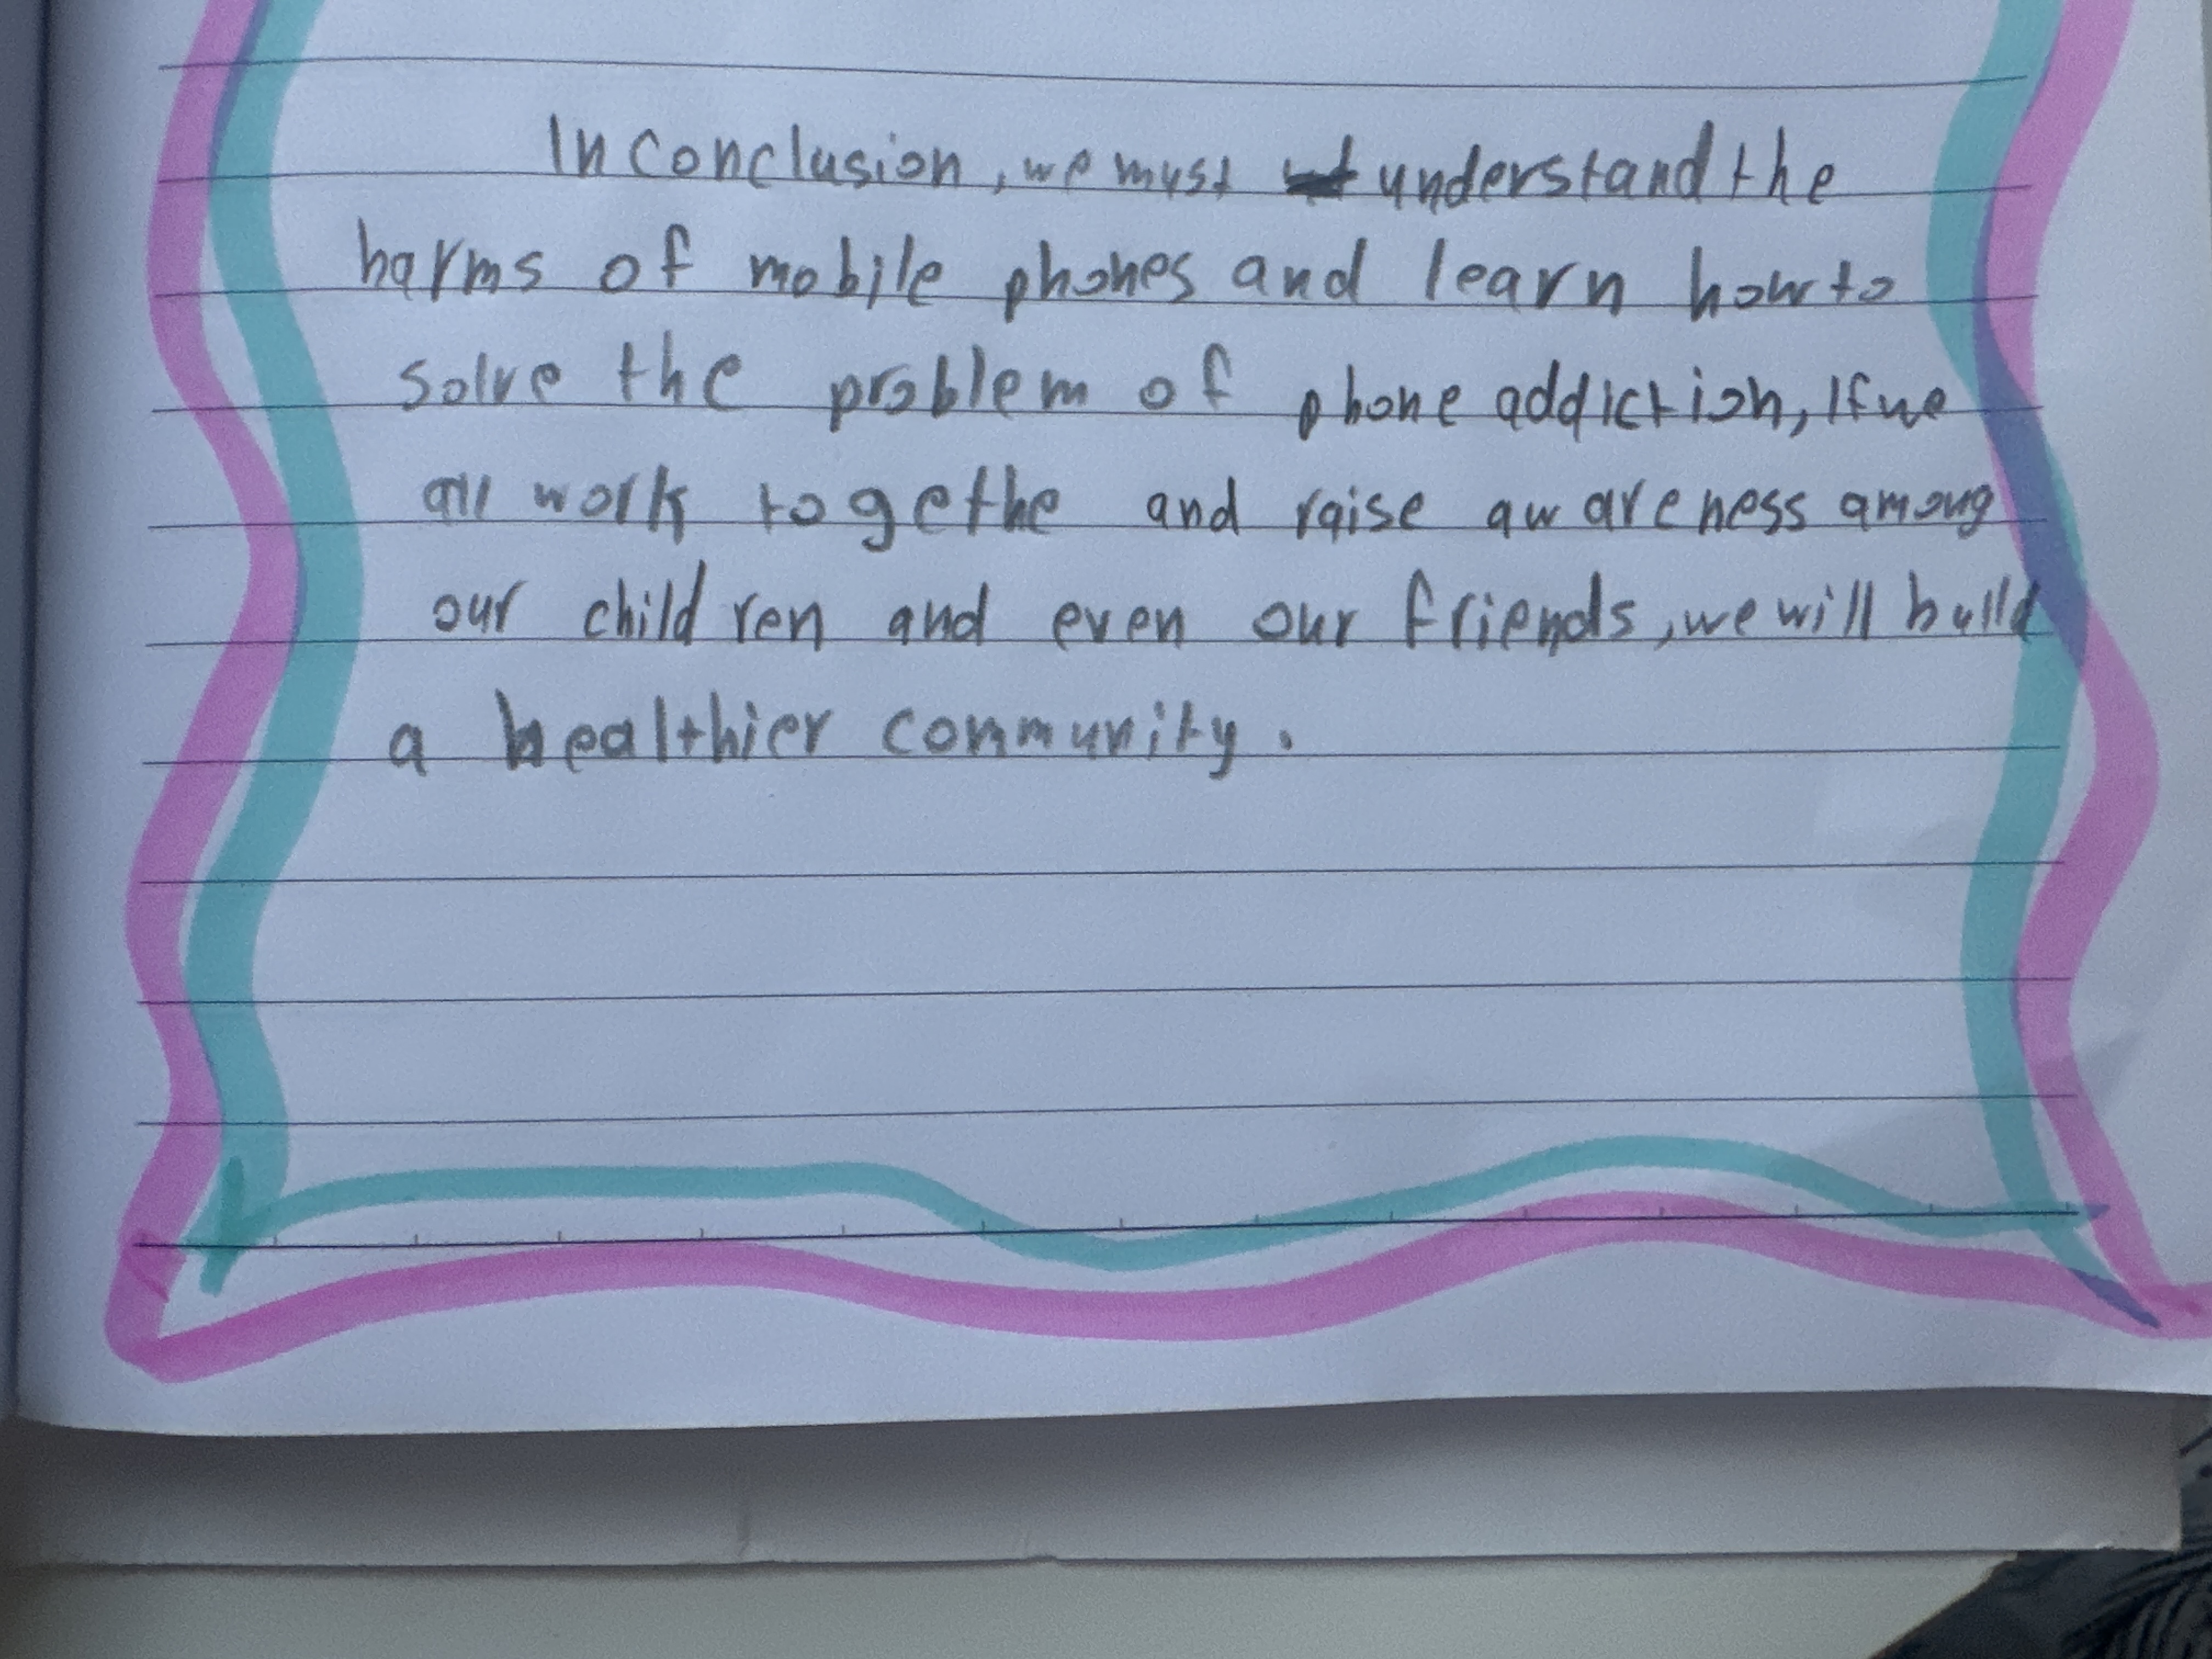 In conclusion, we must understand the
harms of mobile phones and learn how to
solve the problem of phone addiction, If we
all work togethe and raise awareness among
our children and even our friends, we will bulld
a healthier community.